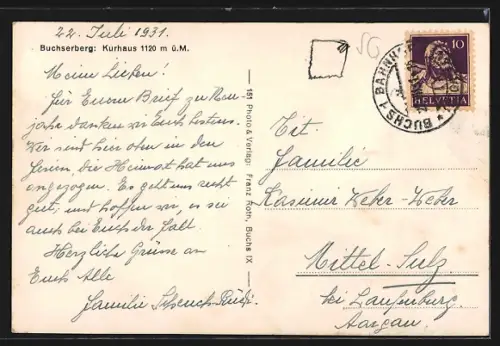 22. Juli 1931.
Buchserberg: Kurhaus 1120 m ü.M.
Meine Lieben!
Für Euern Brief zu Neu-
jahr danken wir Euch bestens.
Wir sind hier oben in den
Ferien die Heimat hat uns
angezogen. Es geht uns recht
gut, und hoffen wir, es sei
auch bei Euch der Fall.
Herzliche Grüsse an
Euch Alle
Familie
— 151 Photo & Verlag: Franz Roth, Buchs IX —
SG
10
HELVETIA
BUCHS 1 BAHNHOF
Tit.
Familie
Kasimir Weber-Weber
Mittel-Sulz
bei Laufenburg.
Aargau.